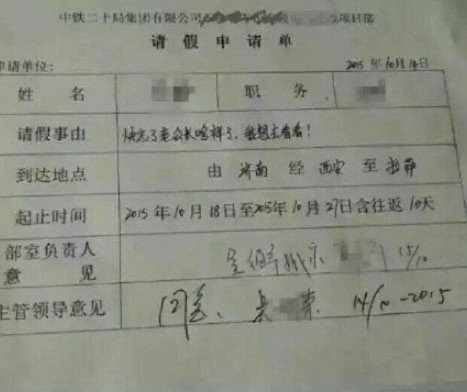 中铁二十局集团有限公司 项目部
请假申请单
申请单位： 2015年10月14日
姓名 职务
请假事由 快忘了老公长啥样了，我想去看看！
到达地点 由 济南 经 西安 至 拉萨
起止时间 2015年10月18日至2015年10月27日含往返10天
部室负责人意见 15/10
主管领导意见 同意、 14/10-2015